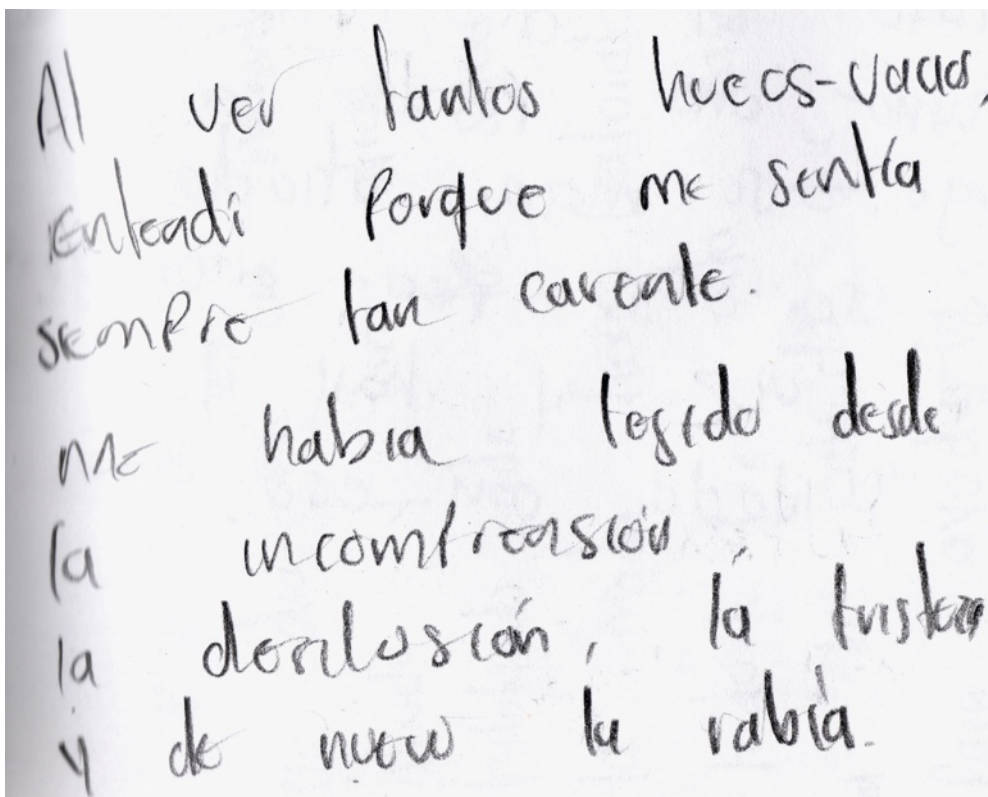 Al ver tantos huecos-vacios,
entendi porque me sentía
siempre tan carente.
me habia tegido desde
la incompreasión,
la desilusión, la tristeza
y de nuevo la rabía.